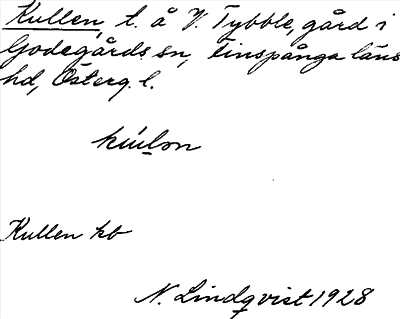 Kullen, t. å V. Tybble, gård i
Godegårds sn, Finspånga läns
hd, Österg. l.
kúlon
Kullen kb
N. Lindqvist 1928